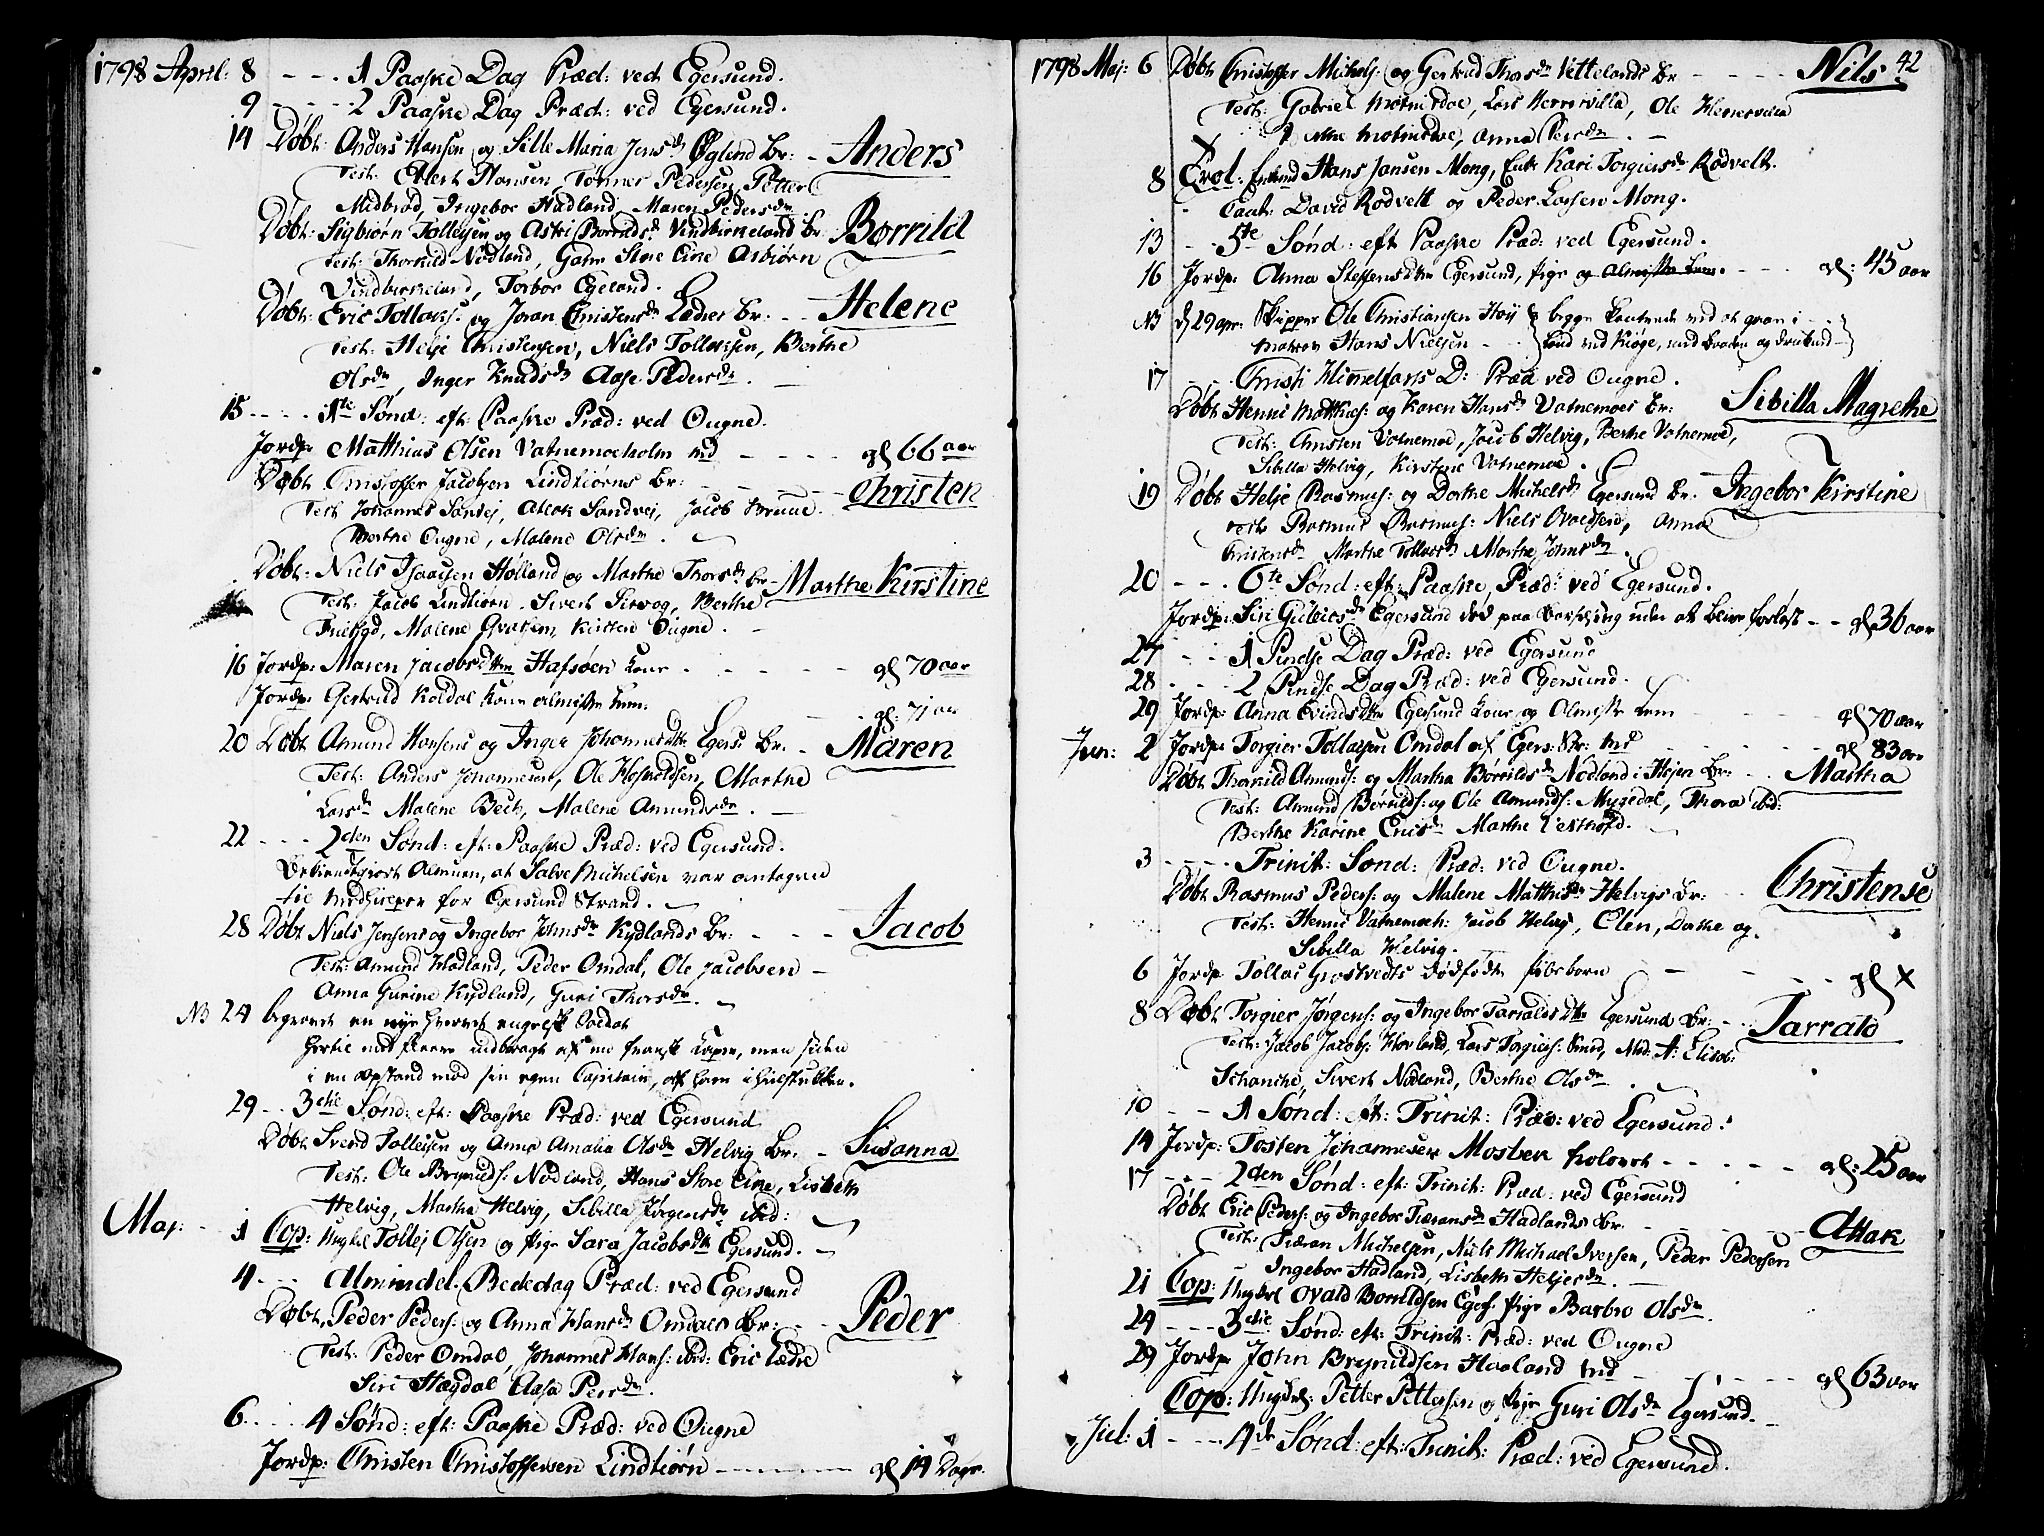 1798 April: 8 - - - 1 Paaske Dag Præd: ved Egersund.
9 - - - - 2 Paaske Dag Præd: ved Egersund.
14 Døbt: Anders Hansen og Sille Maria Jensdr Øglend Br: - Anders
Test: Elert Hansen, Tønnes Pedersen, Petter
Midbrød, Ingebor Hadland Maren Pedersdr
Døbt: Sigbiørn Tollefsen og Astri Borrildsdr Vindbirkeland Br. Børrild
Test: Thorkild Nødland, Store Eine Asbiørn
Vindbirkeland, Torbor Egeland.
Døbt: Eric Tollaks: og Joran Christensdr Lædres Br: - - Helene
Test: Helje Christensen, Niels Tollaksen, Berthe
Olsdr, Inger Knudsdr Aase Pedersdr. -
15 - - - - 1ste Sønd: eft: Paaske Præd: ved Ougne.
Jordp: Matthias Olsen Vatnemoeholm - - - - gl 66 aar
Døbt Christoffer Jacobsen Lindtiørns Br: - - - - - Christen
Test Johannes Sandvej, Attak Sandvej, Jacob Bruue.
Berthe Ougne, Malene Olsdr.
Døbt: Niels Isaacsen Hølland og Marthe Thorsdr Br. - Marthe Kirstine
Test: Jacob Lindtiørn. Sivert Sirevog, Berthe
Malene Kirsten Ougne. -
16 Jordp: Maren Jacobsdttr Hafsøen kone - - - - - gl 70 aar
Jordp: Gertrud Koldal kone almisse lem. - - gl: 71 aar
20 Døbt Amund Hansens og Inger Johannesdttr Egers: Br: - Maren
Test: Anders Johannesen, Ole Marthe
Larsdr Malene Bech, Malene Amundsdr. -
22 - - - 2den Sønd: eft: Paaske Præd: ved Egersund.
Bekiendtgiort Almuen, at Salve Michelsen var antagen
til Medhielper for Egersund Strand.
28 Døbt Niels Jensens og Ingebor Johnsdr Kydlands Br: - - - - Jacob
Test: Amund Hadland, Peder Omdal, Ole Jacobsen -
Anna Gurine Kydland, Guri Thorsdr.
NB 24 begravet en engelsk Soldat
hertil med fleere indbragt af en fransk Kaper, men siden
i en opstand mod sin egen Capitain, af ham ihielstukken.
29 - - 3die Sønd: eft: Paaske Præd: ved Egersund
Døbt Svend Tollefsen og Anna Amalia Olsdr Helvig Br: - Susanna
Test: Ole Brynilds: Nødland, Hans Store Eine, Lisbeth
Helvig, Martha Helvig, Sibilla Jørgensdr ibid:
Maj: - 1 Cop: Ungkl Tollef Olsen og Pige Sara Jacobsdttr Egersund. -
4 - - - Almindel. Bededag Præd: ved Egersund
Døbt, Peder Peders: og Anna Hansdr Omdals Br: - - Peder
Test: Peder Omdal, Johannes Hans: ibid: Eric Lædre
Siri Hægdal Aasa Persdr.
6 - - - 4 Sønd: eft: Paaske Præd: ved Ougne
Jordp: Christen Christoffersen Lindtiørn - - - - - gl 14 Dage.
42
1798 Maj: 6 Døbt Christoffer Michels: og Gertrud Thorsdr Vettelands Br - - - - Nils
Test: Gabriel Lars Herrervilla, Ole Herrervilla
Anna Persdr. -
8 Trol. Hans Jansen Mong, Enke Kari Torgiersdr Rødvelt.
Caut: David Rødvelt og Peder Larsen Mong.
13 - - 5te Sønd: eft Paaske Præd: ved Egersund.
16 Jordp: Anna Steffensdttr Egersund, Pige og Almisse Lem. - - - gl: 45 aar
NB d 29 apr: Skipper Ole Christiansen Høij begge at gaae i
Matros Hans Nielsen - - - Land ved Kiøge, ved Baaden og druknede
17 - - Christi Himmelfarts D: Præd ved Ougne.
Døbt Henric Matthis: og Karen Hansdr Vatnemoes Br: Sibilla Magrethe
Test: Christen Vatnemoe, Jacob Helvig, Berthe Vatnemoe,
Sibilla Helvig, Kirstine Vatnemoe.
19 Døbt Helje Rasmus: og Dorthe Michelsdr Egersund Br: - Ingebor Kirstine
Test: Rasmus Rasmus: Niels Anna
Christensdr Marthe Tollaksdr Marthe Johnsdr.
20 - - - 6te Sønd: eft: Paaske, Præd: ved Egersund.
Jordp: Siri Egersund død paa Barselseng uden at blive forløst - - gl 36 aar
27 - - 1 Pindse Dag Præd: ved Egersund
28 - - - 2 Pindse Dag Præd: ved Egersund.
29 Jordp: Anna Evindsdttr Egersund kone og Almisse Lem - - - gl 70 aar
Jun: 2 Jordp: Torgier Tollaksen Omdal af Egers: - - - gl 83 aar
Døbt Thorkild Amunds: og Martha Børrildsdr Nødland i Hejen Br: - - Martha
Test: Amund Børrilds: og Ole Amunds: Mygedal, Thora ibid:
Berthe Karine Ericsdr Marthe
3 - - - - Trinit: Sønd: Præd: ved Ougne.
Døbt Rasmus Peders: og Malene Matthisdr Helvigs Br: - - Christense
Test: Henric Vatnemoe: Jacob Helvig, Elen, Dorthe og
Sibilla Helvig.
6 Jordp Tollac Grostvedts dødfødte Pigebarn - - - - gl X
8 Døbt Torgier Jørgens: og Ingebor Tarraldsdttr Egersund Br: - - Tarrald
Test: Jacob Jacobs: Hovland, Lars Torgiers: Smed, Mad: A: Elisab:
Schanche, Sivert Nødland, Berthe Olsdr.
10 - - 1 Sønd: eft: Trinit: Præd: ved Egersund.
14 Jordp: Tosten Johannesen Mosben - - - - gl: 25 aar
17 - - - 2den Sønd: eft: Trinit: Præd: ved Egersund
Døbt Eric Peders: og Ingebor Tieransdr Hadlands Br: - - - - Attak
Test: Tiæran Michelsen, Niels Michael Iversen, Peder Pedersen
Ingebor Hadland, Lisbeth Heljesdr. -
21 Cop: Ungkl Ovald Borrildsen Egers. Pige Barbro Olsdr.
24 - - - 3die Sønd: eft: Trinit: Præd: ved Ougne
29 Jordp John Brynildsen Haaland - - - - gl 63 aar
Cop: Ungkl Petter Pettersen og Pige Guri Olsdr Egersund. -
Jul: 1 - - - 4de Sønd: eft: Trinit: Præd: ved Egersund.